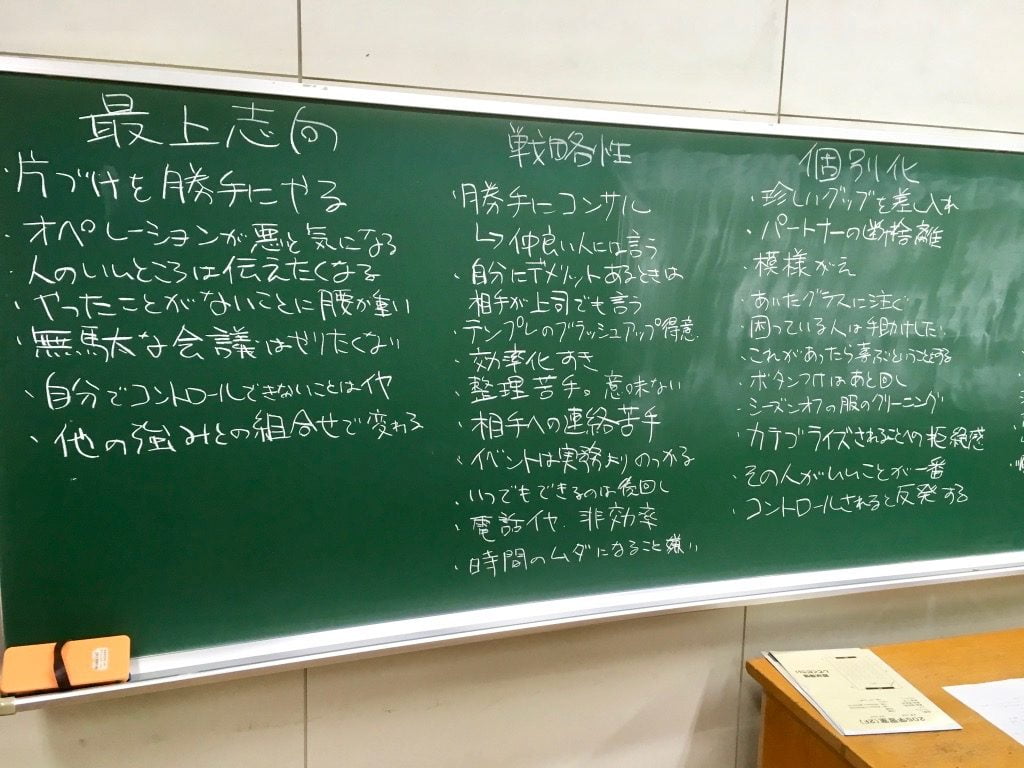 最上志向
・片づけを勝手にやる
・オペレーションが悪いと気になる
・人のいいところは伝えたくなる
・やったことがないことに腰が重い
・無駄な会議はやりたくない
・自分でコントロールできないことはイヤ
・他の強みとの組合せで変わる
戦略性
・勝手にコンサル
↳仲良い人には言う
・自分にデメリットあるときは
相手が上司でも言う
・テンプレのブラッシュアップ得意
・効率化すき
・整理苦手。意味ない
・相手への連絡苦手
・イベントは実務よりのっかる
・いつでもできるのは後回し
・電話イヤ 非効率
・時間のムダになること嫌い
個別化
・珍しいグッズを差し入れ
・パートナーの断捨離
・模様がえ
・あいたグラスに注ぐ
・困っている人は手助けしたい
・これがあったら喜ぶということする
・ボタンつけはあと回し
・シーズンオフの服のクリーニング
・カテゴライズされることへの拒絶感
・その人がいいことが一番
・コントロールされると反発する